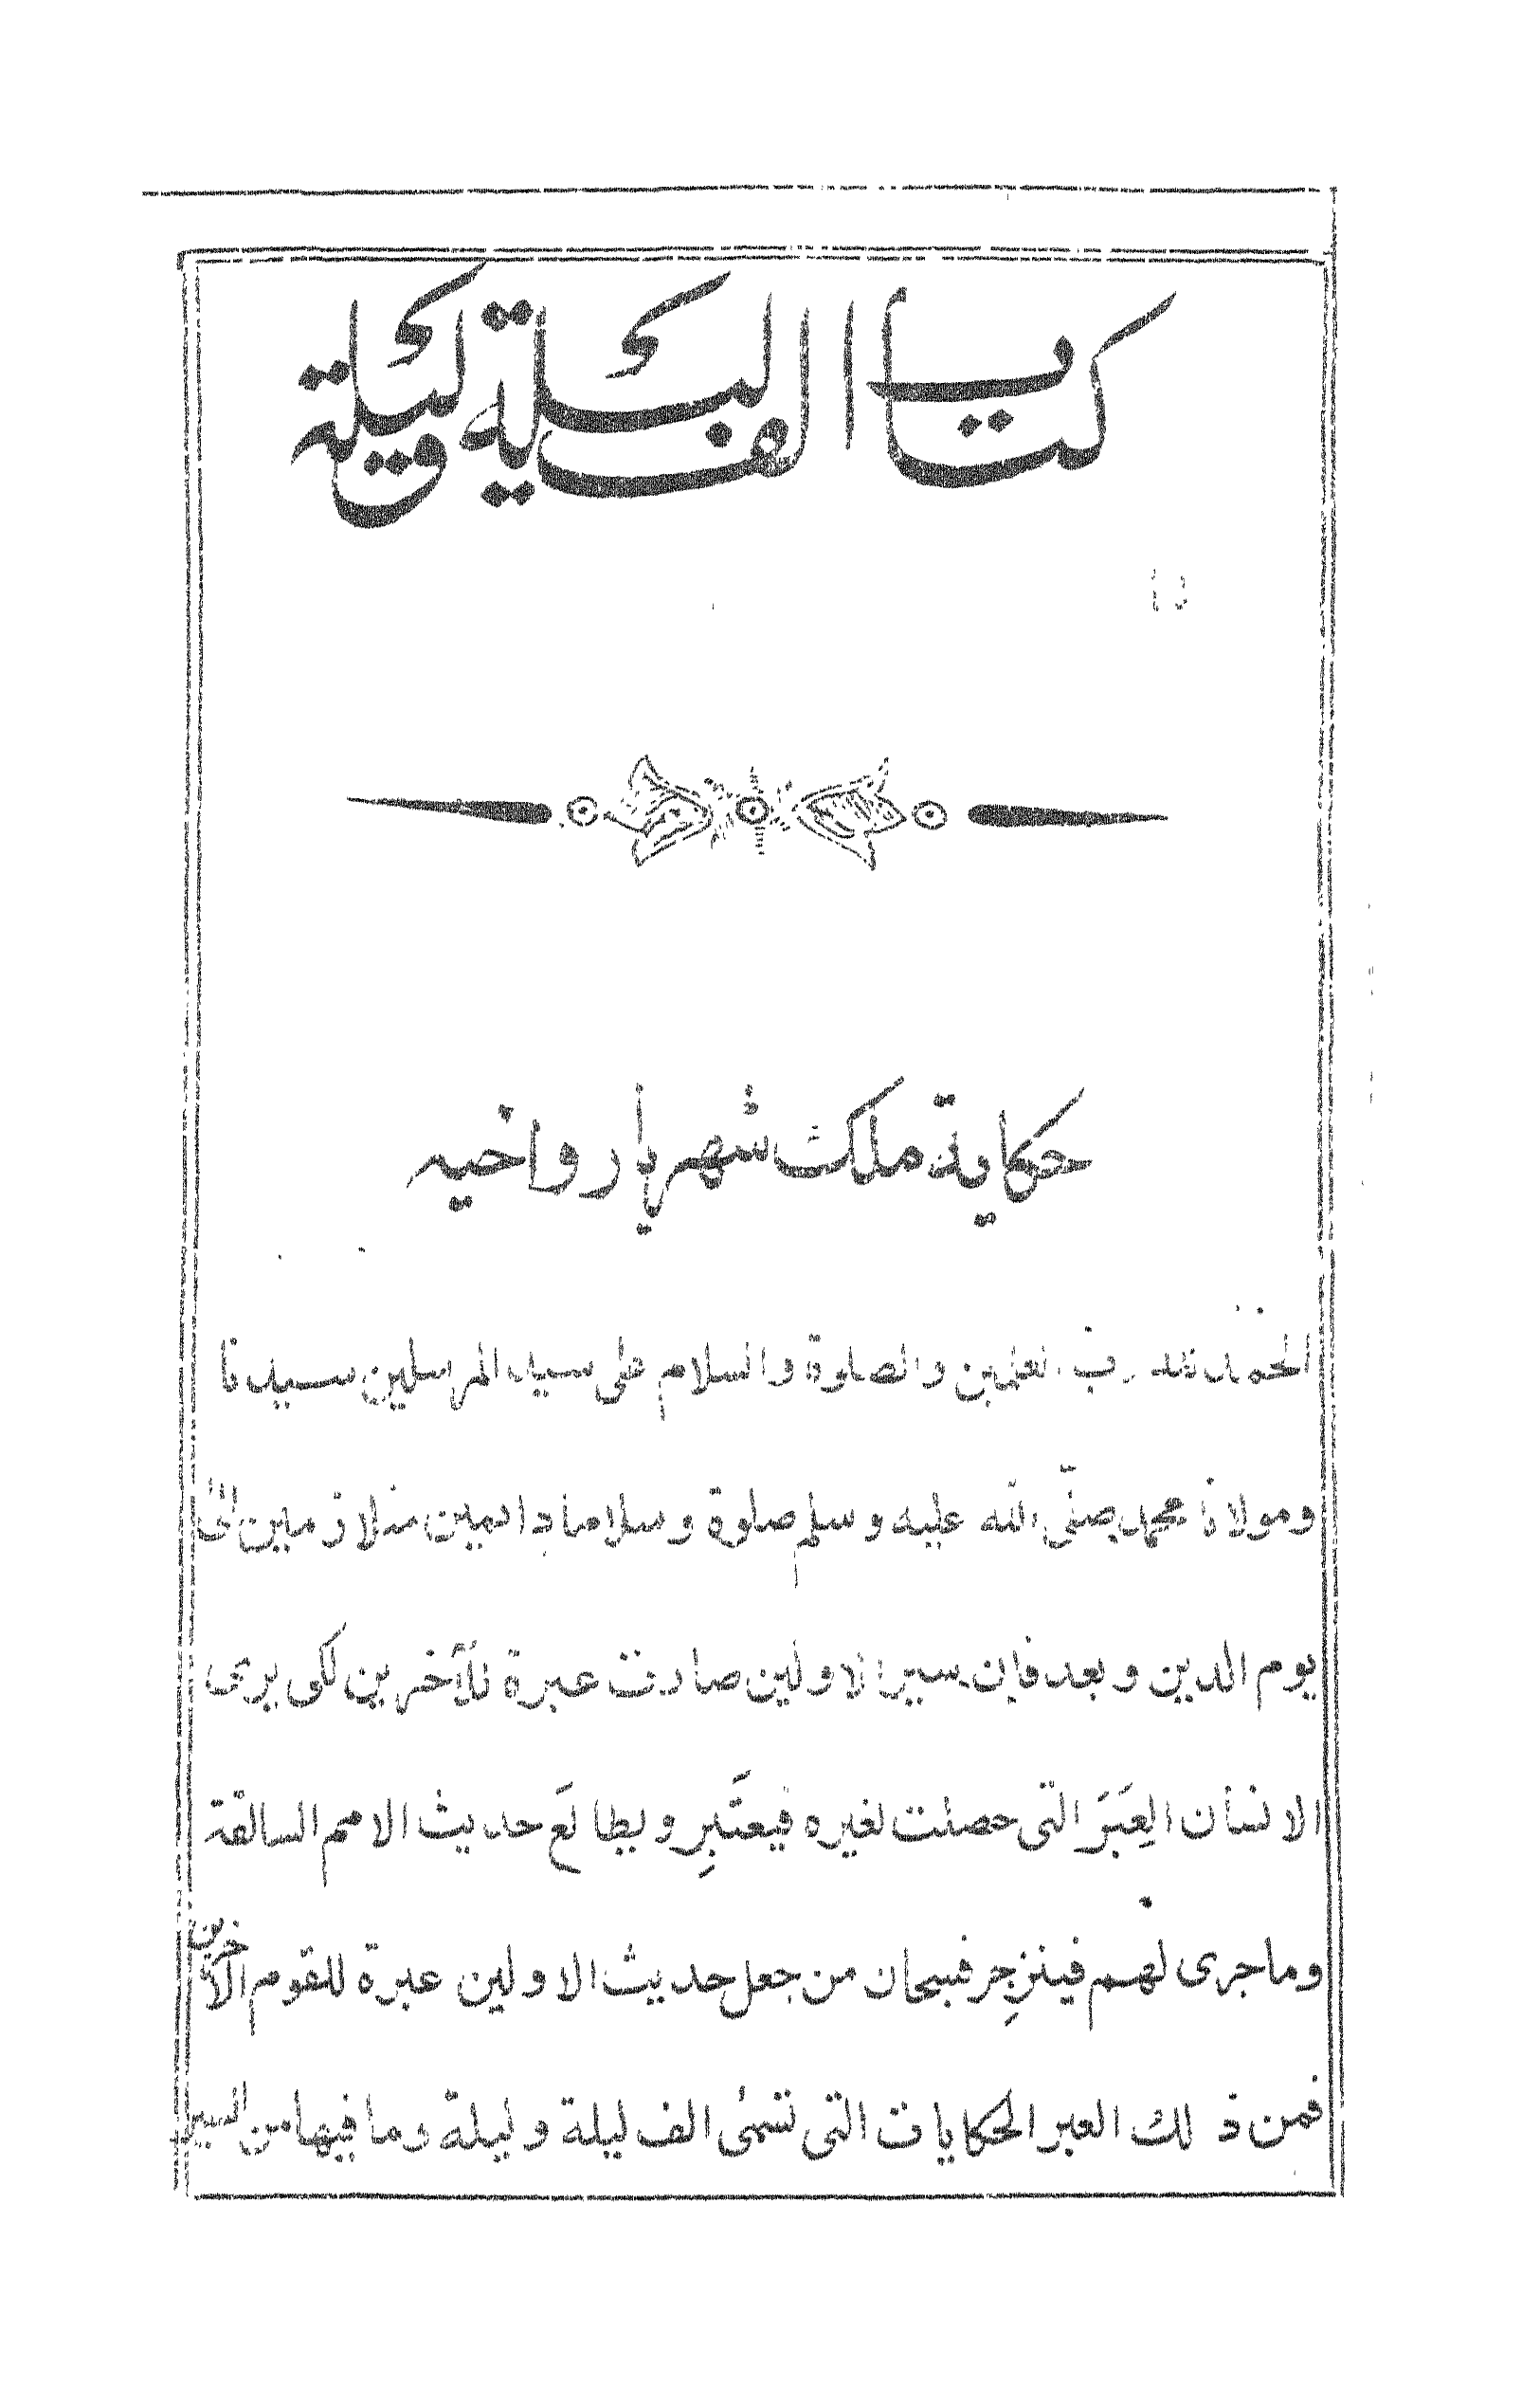 كتاب الف ليلة وليلة
حكاية ملك شهريار واخيه
الحمد لله رب العلمين والصلوة والسلام على سيد المرسلين سيدنا
ومولانا محمد صلّى الله عليه وسلم صلوة وسلاما دائمين متلازمين الى
يوم الدين وبعد فإن سير الاولين صارت عبرة للأخرين لكى يرى
الانسان العِبَرَ التى حصلت لغيره فيعتَبِر ويطالَع حديث الامم السالفة
وما جرى لهم فينزِجر فسبحان من جعل حديث الاولين عبرة للقوم الآخرين
فمن ذلك العبر الحكايات التى تسمى الف ليلة وليلة وما فيها من السير